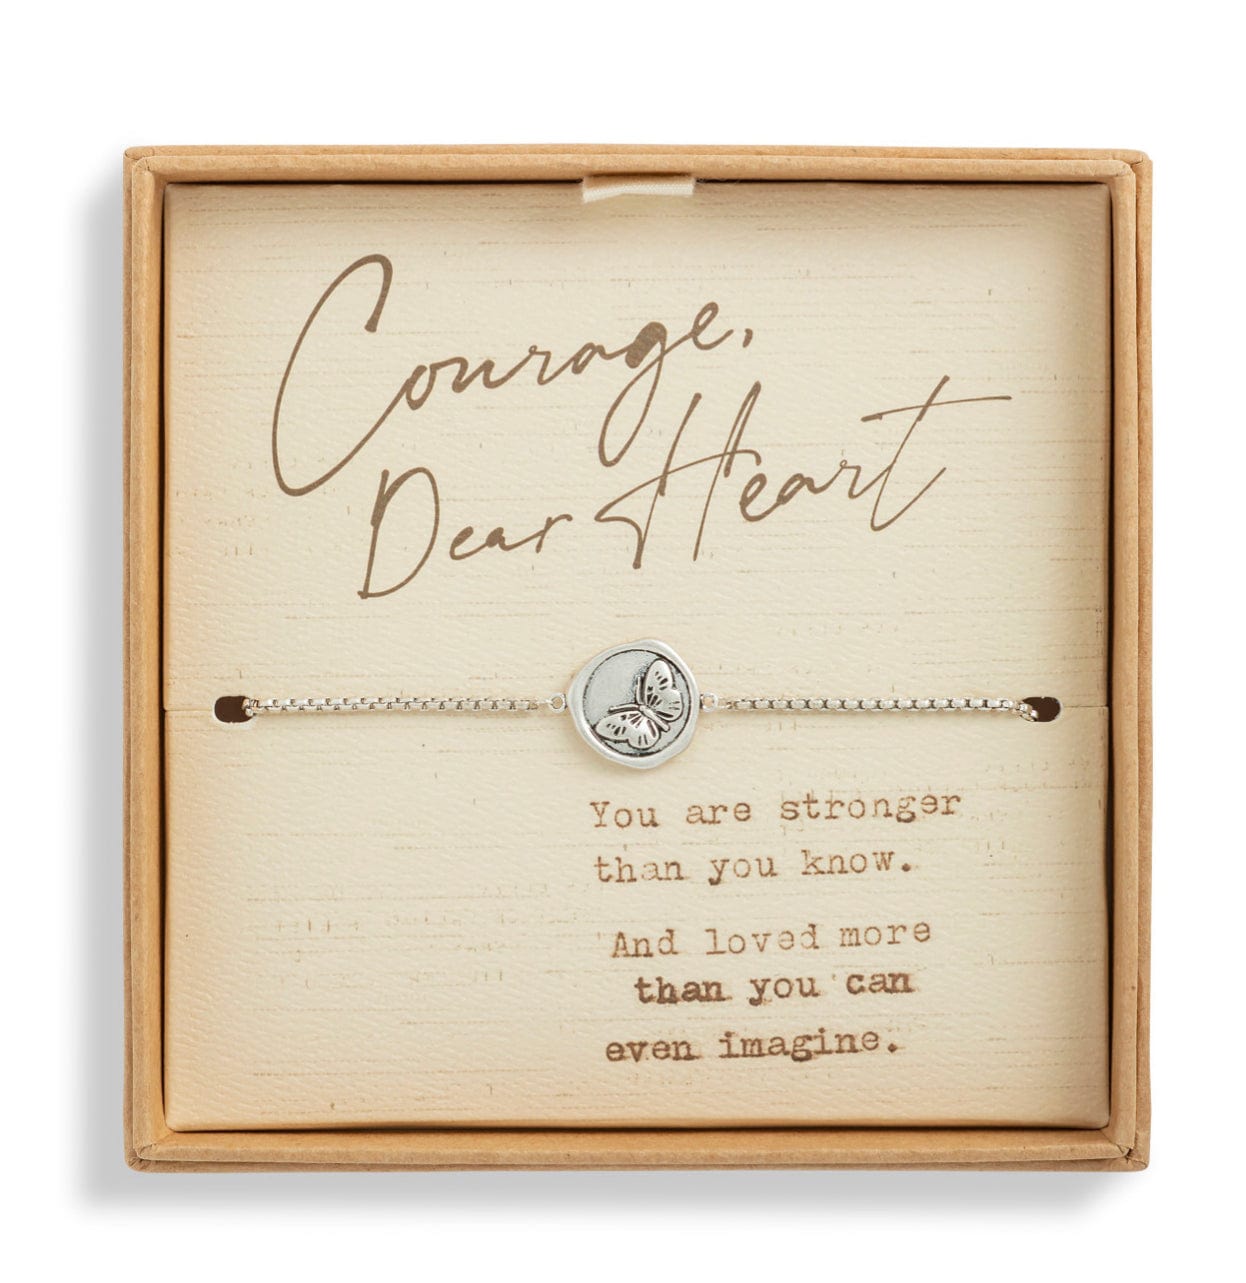 Courage,
Dear Heart
You are stronger
than you know.
And loved more
than you can
even imagine.